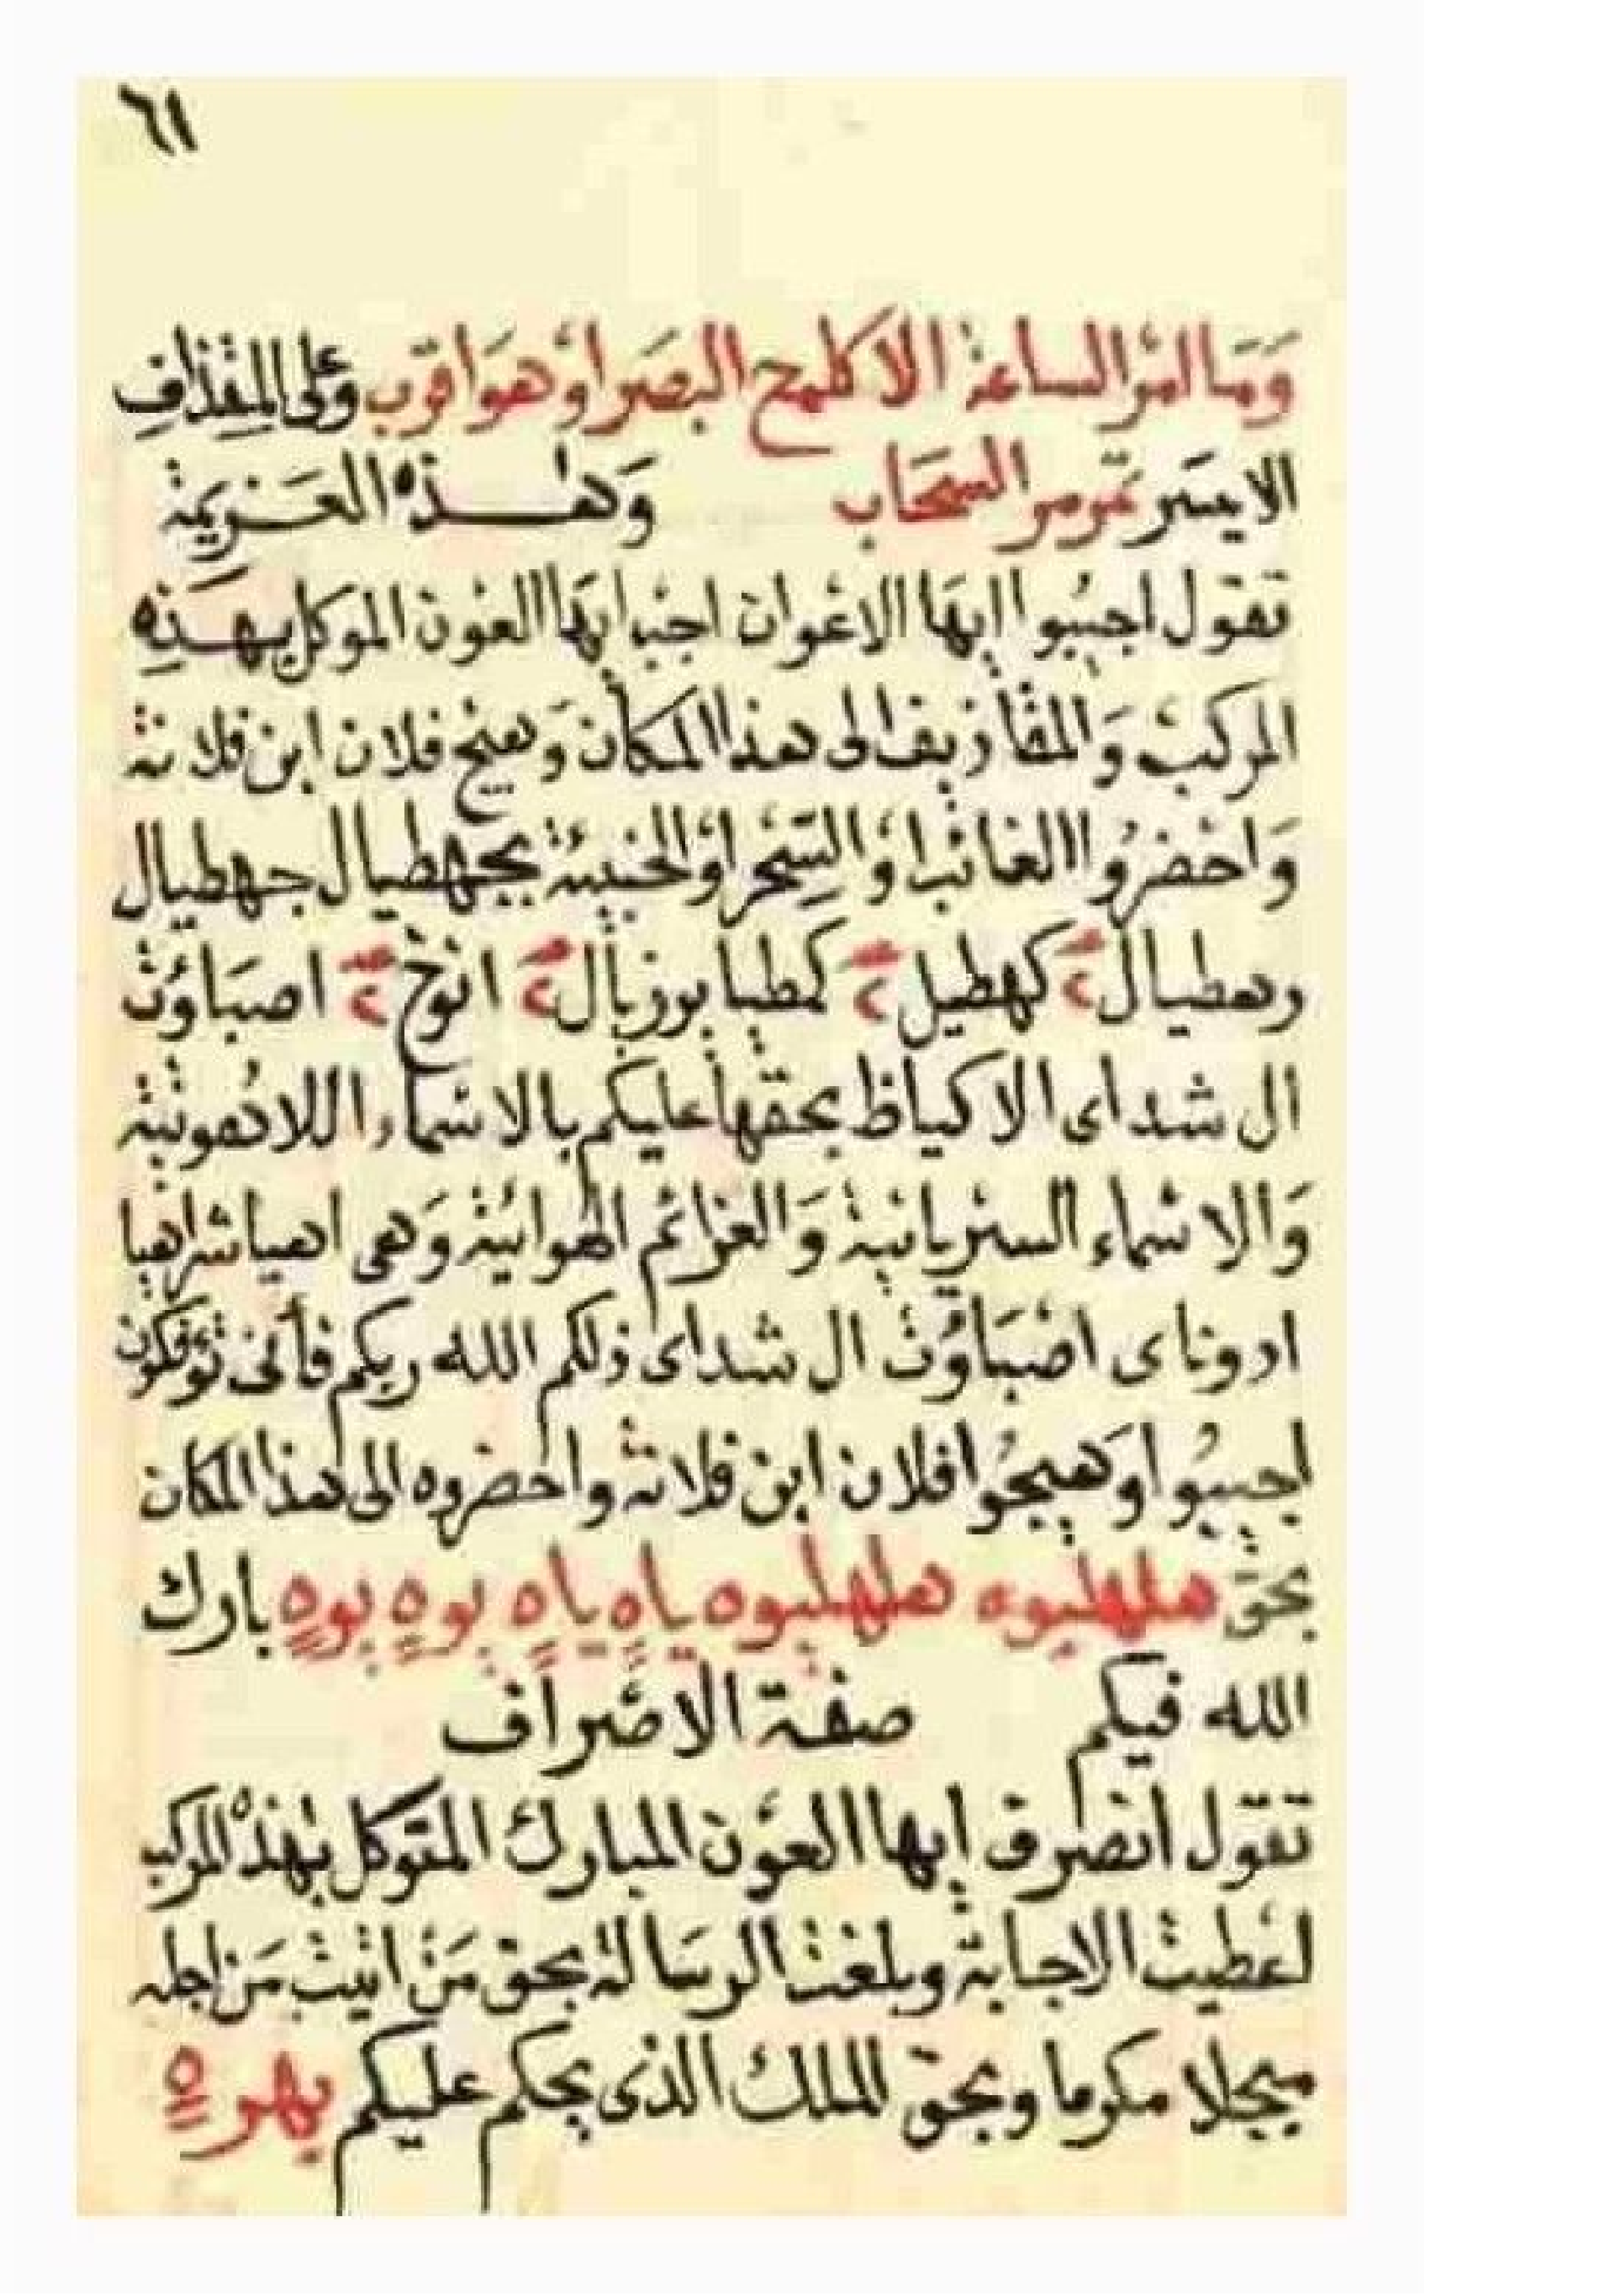 ٦١
وَمَا امر الساعة الا كلمح البصَر اوْ هوَ اقرَب وعلى المِقذافِ
الايسَر تمر مر السحَاب وَهـذه العَزيمة
تقول اجيبُوا ايهَا الاعْوان اجبْ ايهَا العوْن الموكل بهـذِهِ
المركبْ وَالمقَاذيف الى هذا المكان وَهيج فلان ابن فلانة
وَاحْضرُوا الغائب اوْ السّحْر اوْ الخبيئة بجهطيال جهطيال
وهطيال ٢ كهطيل ٢ كمطيا بوزيال ٢ انوخ ٢ اصبَاوُت
ال شداى الاكياظ بحقها عليكم بالاسماء اللاهُوتية
وَالاسْماء السريانية وَالعزائم الهوائية وَهى اهيا شراهيا
ادوناى اصْبَاوُت ال شداى ذلكم الله ربكم فأنى تؤفكون
اجيبُوا وَهيجُوا فلان ابن فلانة واحضروه الى هذا المكان
بحق هلهليوه هلهليوه ياه ياه يوه يوه بارك
الله فيكم صفة الاصْراف
تقول انصرف ايها العوْن المبارك المتوكل بهذه المركب
اعطيت الاجابة وبلغت الرسَالة بحق مَن اتيت مَن اجله
مبجلا مكرما وبحق الملك الذى يحكم عليكم يهوه